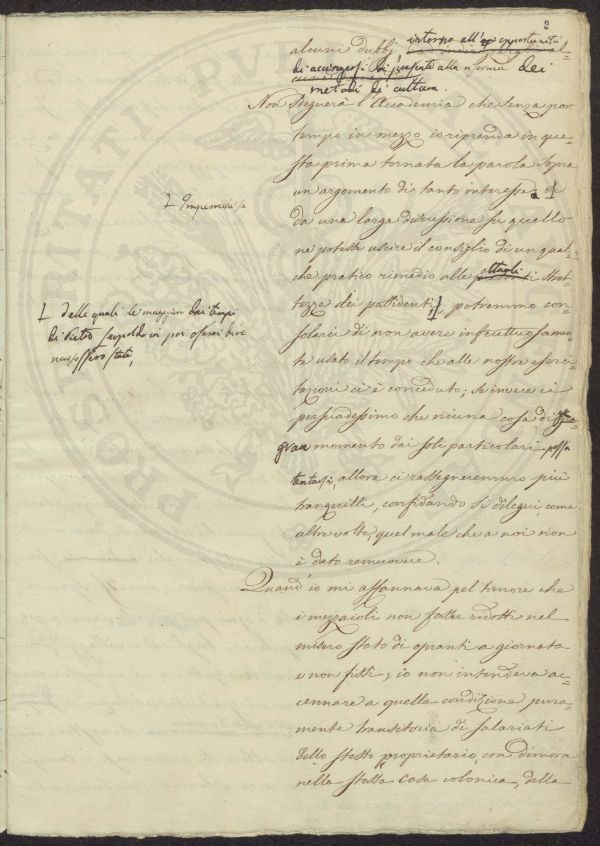 2
alcuni dubbj intorno all' opportunità
di accingersi di presente alla riforma dei
metodi di cultura.
Non sdegnerà l'Accademia che senza por
tempo in mezzo io riprenda in que=
sta prima tornata la parola sopra
un argomento di tanto interesse: e
Ⱶ Imperocchè se
da una larga discussione su quello
ne potesse uscire il consiglio di un qual=
che pratico rimedio alle attuali stret=
tezze dei possidenti, potremmo con=
Ⱶ delle quali le maggiori dai tempi
di Pietro Leopoldo in poi
solarci di non avere infruttuosamen=
te usato il tempo che alle nostre eserci=
tazioni ci è conceduto; se invece ci
persuadessimo che niuna cosa di
gran momento dai soli particolari possa
tentarsi, allora ci rassegneremmo più
tranquilli, confidando si dilegui, come
altre volte, quel male che a noi non
è dato remuovere.
Quand'io mi affannava pel timore che
i mezzaioli non fosser ridotti nel
misero stato di opranti a giornata
e non fissi; io non intendeva ac=
cennare a quella condizione pura=
mente transitoria di salariati
dello stesso proprietario, con dimora
nella stessa casa colonica, della